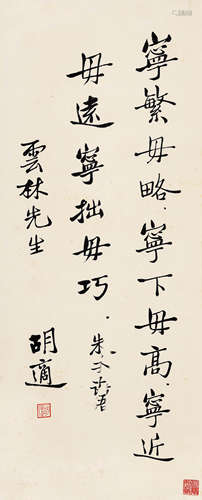 寧繁毋略．寧下毋高．寧近
毋遠寧拙毋巧．朱子語
雲林先生
胡適